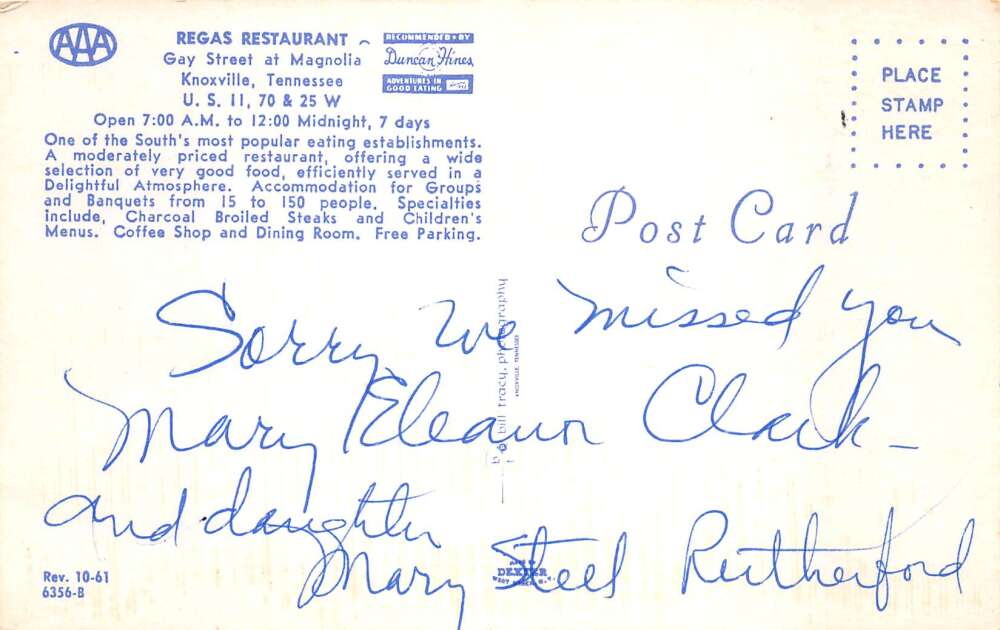 AAA
REGAS RESTAURANT
Gay Street at Magnolia
Knoxville, Tennessee
U. S. 11, 70 & 25 W
Open 7:00 A.M. to 12:00 Midnight, 7 days
RECOMMENDED BY
Duncan Hines
ADVENTURES IN
GOOD EATING
One of the South's most popular eating establishments.
A moderately priced restaurant, offering a wide
selection of very good food, efficiently served in a
Delightful Atmosphere. Accommodation for Groups
and Banquets from 15 to 150 people. Specialties
include, Charcoal Broiled Steaks and Children's
Menus. Coffee Shop and Dining Room. Free Parking.
PLACE
STAMP
HERE
Post Card
Sorry we missed you
Mary Eleanor Clark -
and daughter
Mary Steel Rutherford
bill tracy, photography
KNOXVILLE, TENNESSEE
Rev. 10-61
6356-B
MADE BY
DEXTER